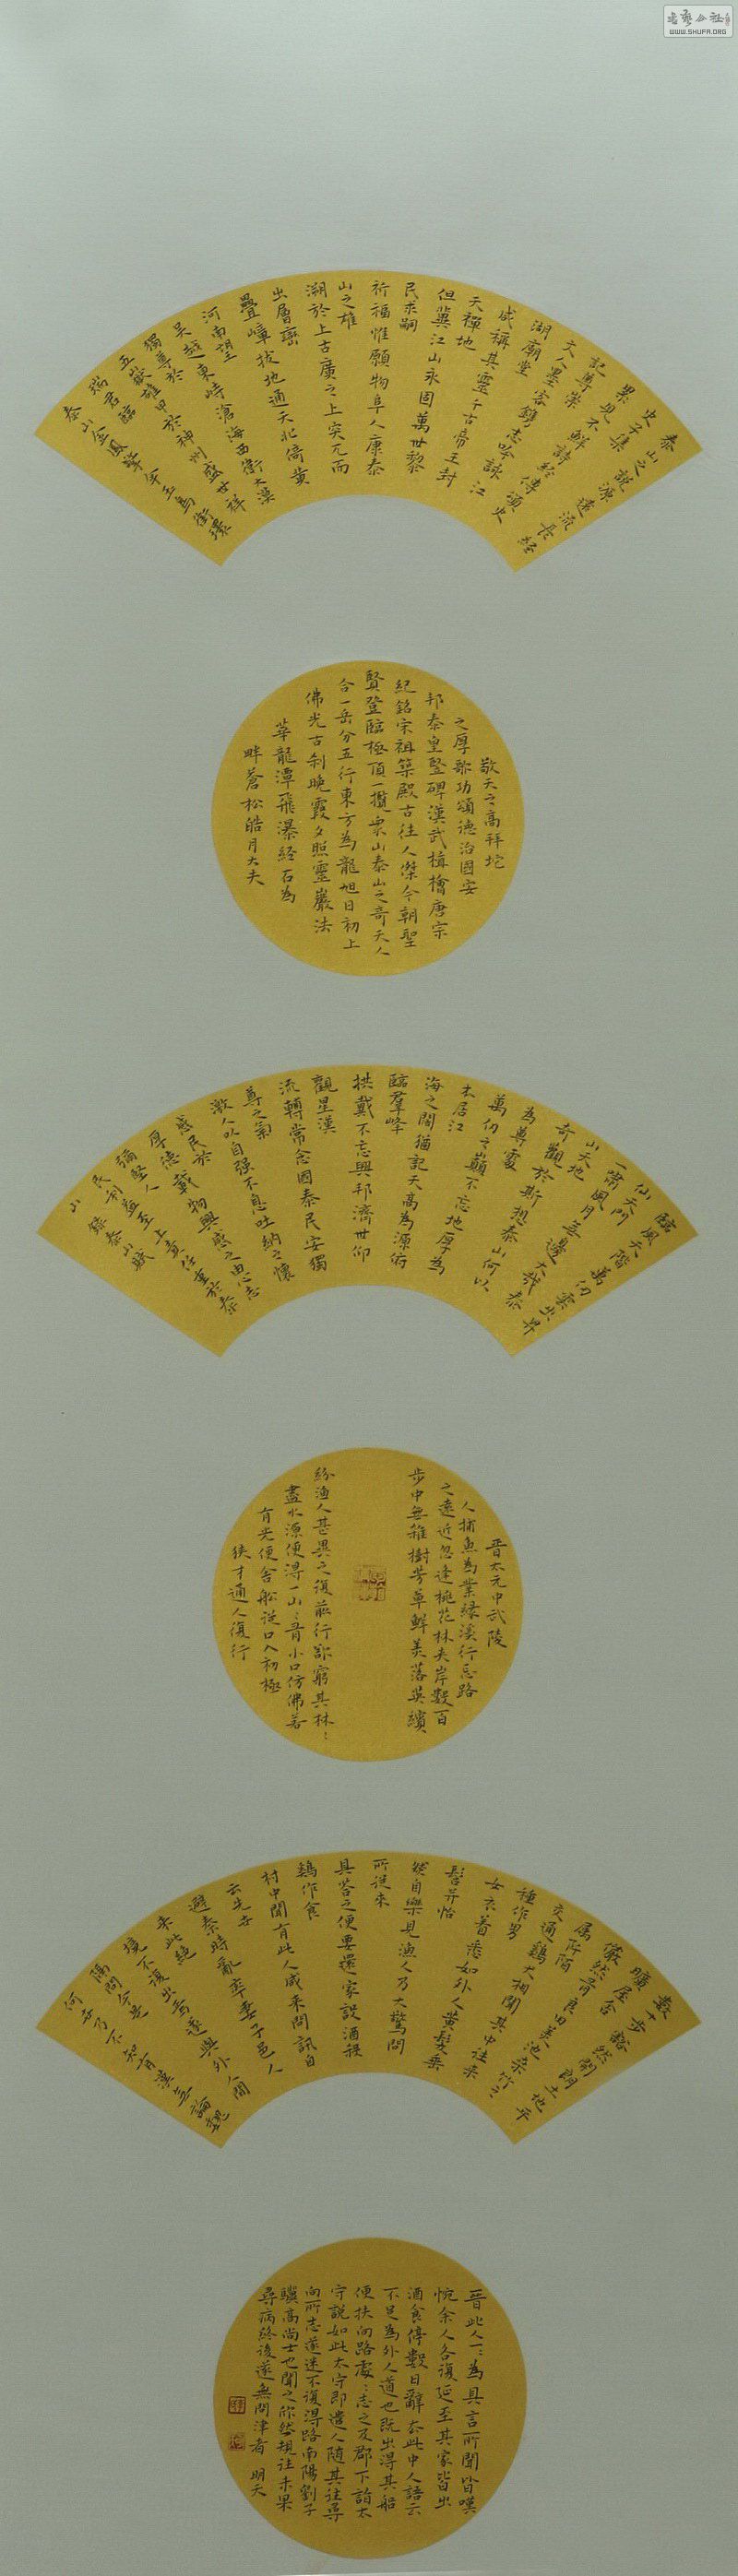 WWW.SHUFA.ORG
泰山之說源遠流長經
史子集
累見不鮮詩經傳頌史
記尊崇
文人墨客鐫志吟詠江
湖廟堂
咸稱其靈千古帝王封
天禪地
但冀江山永固萬世黎
民求嗣
祈福惟願物阜人康泰
山之雄
溯於上古廣之上突兀而
出層巒
疊嶂拔地通天北倚黄
河南望
吳越東峙滄海西衝大漠
獨尊於
五嶽雄甲於神州盛世祥
瑞君臨
泰山金鳳擎年玉鳥銜環
敬天之高拜地
之厚歌功頌德治國安
邦秦皇豎碑漢武植檜唐宗
紀銘宋祖築殿古往人傑今朝聖
賢登臨極頂一攬衆山泰山之奇天人
合一岳分五行東方為龍旭日初上
佛光古剎晚霞夕照靈巖法
華龍潭飛瀑經石為
畔蒼松皓月大夫
臨風天階萬仞雲出昇
仙天門
一嘯風月無邊大哉泰
山天地
奇觀於斯想泰山何以
為尊處
萬仞之巔不忘地厚為
本居江
海之闊猶記天高為源俯
臨羣峰
拱戴不忘興邦濟世仰
觀星漢
流轉常念國泰民安獨
尊之氣
激人以自强不息吐納之懷
感民於
厚德載物興感之由心志
彌堅人至上責任重於泰
民利益
山 錄泰山賦
晋太元中武陵
人捕魚為業緣溪行忘路
之遠近忽逢桃花林夹岸數百
步中無雜樹芳草鮮美落英繽
紛漁人甚異之復前行欲窮其林〻
盡水源便得一山〻有小口仿佛若
有光便舍船從口入初極
狹才通人復行
數十步豁然開朗土地平
曠屋舍
儼然有良田美池桑竹之
属阡陌
交通鷄犬相聞其中往来
種作男
女衣着悉如外人黄髮垂
髫并怡
然自樂見漁人乃大驚問
所從來
具答之便要還家設酒殺
鷄作食
村中聞有此人咸来問訊自
云先世
避秦時亂率妻子邑人
来此絶
境不復出焉遂與外人間
隔問今是
何世乃不知有漢無論魏
晋此人一〻為具言所聞皆嘆
惋余人各復延至其家皆出
酒食停數日辭去此中人語云
不足為外人道也既出得其船
便扶向路處〻志之及郡下詣太
守說如此太守即遣人随其往尋
向所志遂迷不復得路南陽劉子
驥高尚士也聞之欣然規往未果
尋病終後遂無問津者 明天